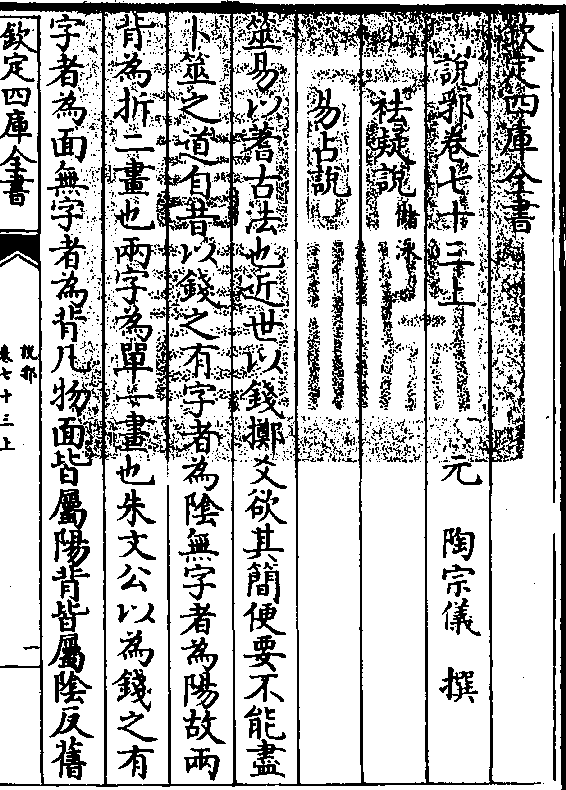 欽定四庫全書
說郛卷七十三上　元　陶宗儀　撰
祛疑說儲泳
易占說
筮易以蓍古法也近世以錢擲爻欲其簡便要不能盡
卜筮之道自昔以錢之有字者為隂無字者為陽故兩
背為折二畫也兩字為單一畫也朱文公以為錢之有
字者為面無字者為背凡物面皆屬陽背皆屬隂反舊
欽定四庫全書
說郛
卷七十三上
一